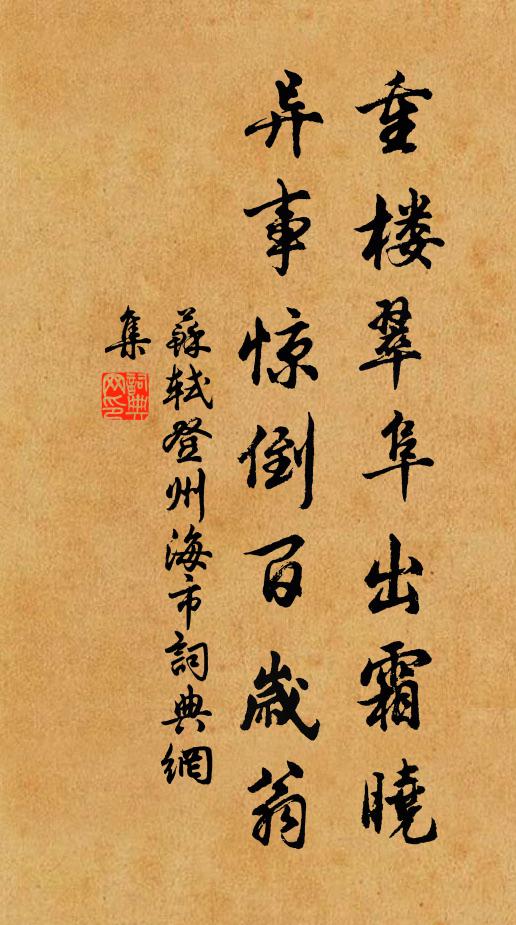 重楼翠阜出霜曉
异事惊倒百歲翁
蘇轼登州海市詞典網
集
詞典網印